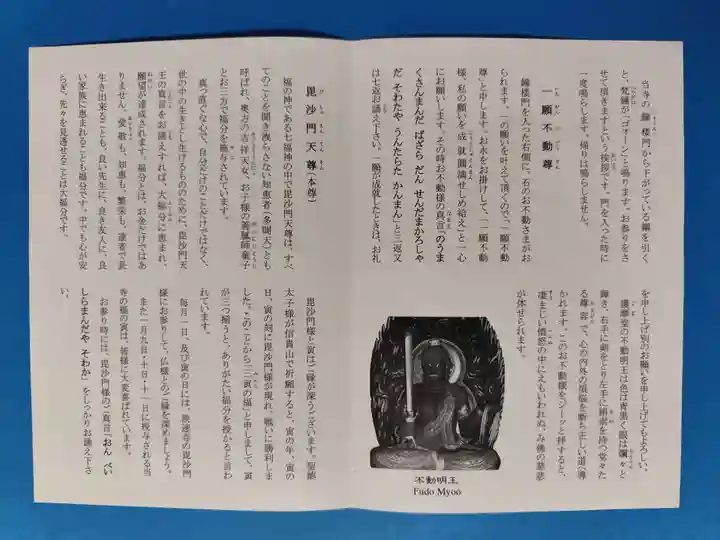 当寺の鐘楼門から下がっている綱を引く
と、梵鐘が「ゴオーン」と鳴ります。お参りをさ
せて頂きますという挨拶です。門を入った時に
一度鳴らします。帰りは鳴らしません。
一願不動尊
鐘楼門を入った右側に、石のお不動さまがお
られます。一の願いを叶えて頂くので「一願不動
尊」と申します。お水をお掛けして、「一願不動
様、私の願いを成就円満せしめ給え」と一心
にお願いします。その時お不動様の真言「のうま
くさんまんだ ばざらだん せんだまかろしゃ
だ そわたや うんたらた かんまん」と三返又
は七返お誦え下さい。一願が成就したときは、お礼
を申し上げ別のお願いを申し上げてもよろしい。
護摩堂の不動明王は色は青黒く眼は爛々と
輝き、右手に剣をとり左手に羂索を持つ堂々た
る尊容で、心の内外の煩悩を断ち正しい道へ導
かれます。このお不動様をジーッと拝すると、
凄まじい憤怒の中にえもいわれぬ、み佛の慈悲
が体せられます。
不動明王
Fudo Myoo
毘沙門天尊(本尊)
福の神である七福神の中で毘沙門天尊は、すべ
てのことを聞き洩らさない知恵者(多聞天)とも
呼ばれ、奥方の吉祥天女、お子様の善膩師童子
とお三方で福分を施与されています。
真っ直ぐな心で、自分だけのことだけではなく、
世の中の生きとし生けるもののために、毘沙門天
王の真言をお誦えすれば、大福分に恵まれ、
願望が達成されます。福分とは、お金だけではあ
りません。愛敬も、知恵も、繁栄も、達者で長
生き出来ることも、良い先生に、良き友人に、良
い家族に恵まれることも福分です。中でも心が安
らぎ、先々を見透せることは大福分です。
毘沙門様と寅はご縁が深うございます。聖徳
太子様が信貴山で祈願すると、寅の年、寅の
日、寅の刻に毘沙門様が現れ、戦いに勝利しま
した。このことから「三寅の福」と申しまして、寅
が三つ揃うと、ありがたい福分を授かると言わ
れています。
毎月一日、及び寅の日には、
様にお参りして、仏様とのご縁を深めましょう。
また一月九日・十日・十一日に授与される当
寺の福の寅は、皆様に大変喜ばれています。
お参り時には、毘沙門様のご真言「おん べい
しらまんだや そわか」をしっかりお誦え下さ
い。